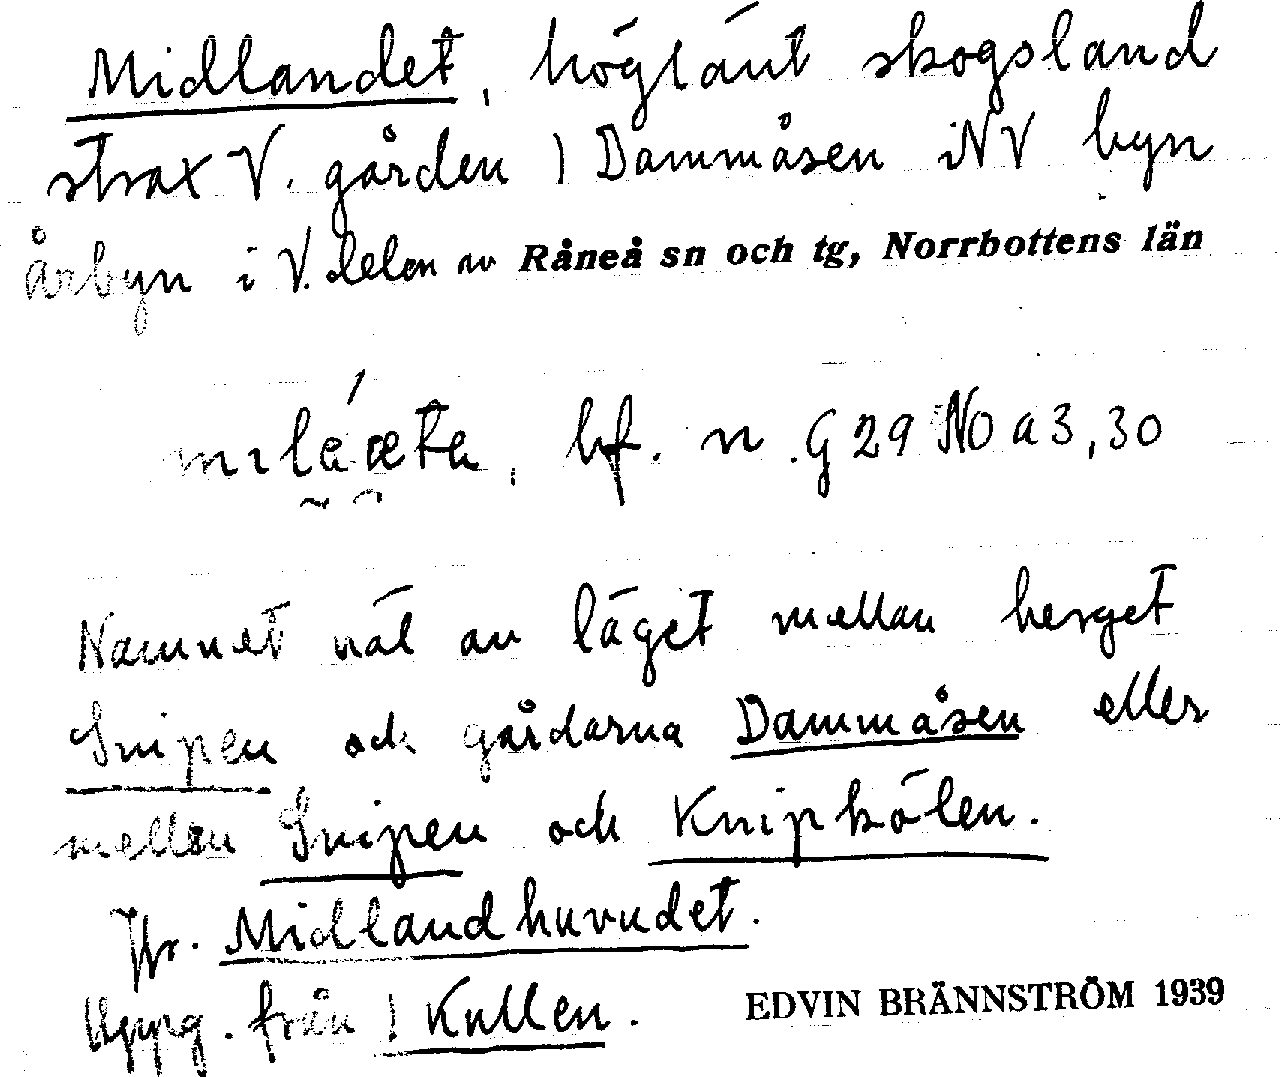 Midlandet, höglänt skogsland
strax V. gården ) Dammåsen i NV byn
Årbyn i V. delen av Råneå sn och tg, Norrbottens län
bf. n. G 29 NO a 3, 30
Namnet väl av läget mellan berget
Snipen och gårdarna Dammåsen eller
mellan Snipen och Knipkölen.
Jfr. Midlandhuvudet.
Uppg. från ) Kullen.
EDVIN BRÄNNSTRÖM 1939